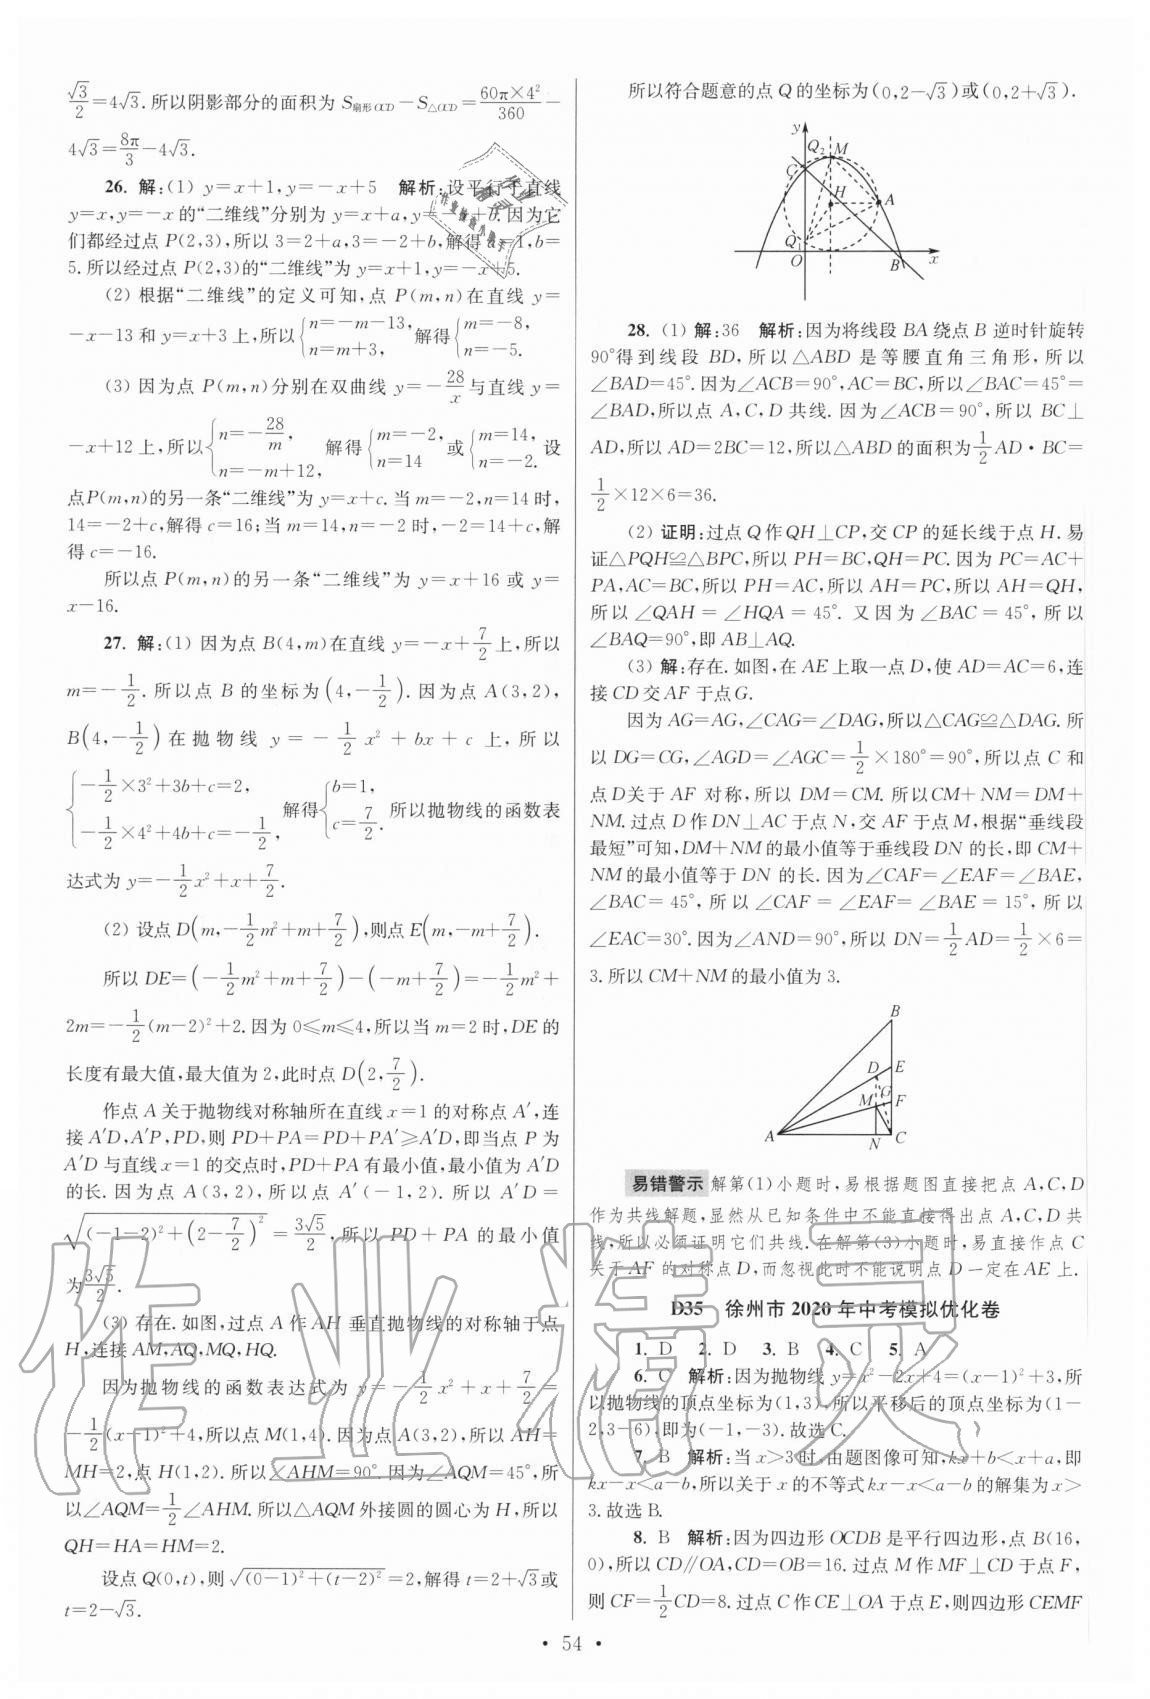 √3/2=4√3.所以阴影部分的面积为 S扇形OCD-S△OCD=60π×4²/360-
4√3=8π/3-4√3.
26. 解:(1) y=x+1,y=-x+5 解析:设平行于直线
y=x,y=-x的“二维线”分别为 y=x+a,y=-x+b.因为它
们都经过点 P(2,3),所以 3=2+a,3=-2+b,解得 a=1,b=
5.所以经过点 P(2,3)的“二维线”为 y=x+1,y=-x+5.
(2) 根据“二维线”的定义可知,点 P(m,n)在直线 y=
-x-13 和 y=x+3 上,所以{n=-m-13, n=m+3, 解得{m=-8, n=-5.
(3) 因为点 P(m,n)分别在双曲线 y=-28/x与直线 y=
-x+12 上,所以{n=-28/m, n=-m+12, 解得{m=-2, n=14 或{m=14, n=-2. 设
点P(m,n)的另一条“二维线”为 y=x+c.当 m=-2,n=14 时,
14=-2+c,解得 c=16;当 m=14,n=-2 时,-2=14+c,解
得 c=-16.
所以点 P(m,n)的另一条“二维线”为 y=x+16 或 y=
x-16.
27. 解:(1) 因为点 B(4,m)在直线 y=-x+7/2上,所以
m=-1/2.所以点 B 的坐标为(4,-1/2).因为点 A(3,2),
B(4,-1/2)在抛物线 y=-1/2x²+bx+c 上,所以
{-1/2×3²+3b+c=2, -1/2×4²+4b+c=-1/2, 解得{b=1, c=7/2. 所以抛物线的函数表
达式为 y=-1/2x²+x+7/2.
(2) 设点 D(m,-1/2m²+m+7/2),则点 E(m,-m+7/2).
所以 DE=(-1/2m²+m+7/2)-(-m+7/2)=-1/2m²+
2m=-1/2(m-2)²+2.因为 0≤m≤4,所以当 m=2 时,DE 的
长度有最大值,最大值为 2,此时点 D(2,7/2).
作点 A 关于抛物线对称轴所在直线 x=1 的对称点 A′,连
接 A′D,A′P,PD,则 PD+PA=PD+PA′≥A′D,即当点 P 为
A′D 与直线 x=1 的交点时,PD+PA 有最小值,最小值为 A′D
的长.因为点 A(3,2),所以点 A′(-1,2).所以 A′D=
√((-1-2)²+(2-7/2)²)=3√5/2,所以 PD+PA 的最小值
为3√5/2.
(3) 存在.如图,过点 A 作 AH 垂直抛物线的对称轴于点
H,连接 AM,AQ,MQ,HQ.
因为抛物线的函数表达式为 y=-1/2x²+x+7/2=
-1/2(x-1)²+4,所以点 M(1,4).因为点 A(3,2),所以 AH=
MH=2,点 H(1,2).所以∠AHM=90°.因为∠AQM=45°,所
以∠AQM=1/2∠AHM.所以△AQM 外接圆的圆心为 H,所以
QH=HA=HM=2.
设点 Q(0,t),则 √((0-1)²+(t-2)²)=2,解得 t=2+√3或
t=2-√3.
所以符合题意的点 Q 的坐标为(0,2-√3)或(0,2+√3).
y
Q₂ M
C
H
A
Q₁
O
B
x
28. (1) 解:36 解析:因为将线段 BA 绕点 B 逆时针旋转
90°得到线段 BD,所以△ABD 是等腰直角三角形,所以
∠BAD=45°.因为∠ACB=90°,AC=BC,所以∠BAC=45°=
∠BAD,所以点 A,C,D 共线.因为∠ACB=90°,所以 BC⊥
AD,所以 AD=2BC=12,所以△ABD 的面积为1/2AD·BC=
1/2×12×6=36.
(2) 证明:过点 Q 作 QH⊥CP,交 CP 的延长线于点 H.易
证△PQH≌△BPC,所以 PH=BC,QH=PC.因为 PC=AC+
PA,AC=BC,所以 PH=AC,所以 AH=PC,所以 AH=QH,
所以∠QAH=∠HQA=45°.又因为∠BAC=45°,所以
∠BAQ=90°,即 AB⊥AQ.
(3) 解:存在.如图,在 AE 上取一点 D,使 AD=AC=6,连
接 CD 交 AF 于点 G.
因为 AG=AG,∠CAG=∠DAG,所以△CAG≌△DAG.所
以 DG=CG,∠AGD=∠AGC=1/2×180°=90°,所以点 C 和
点 D关于 AF 对称,所以 DM=CM.所以CM+NM=DM+
NM.过点 D 作 DN⊥AC 于点 N,交 AF 于点 M,根据“垂线段
最短”可知,DM+NM 的最小值等于垂线段 DN 的长,即 CM+
NM 的最小值等于 DN 的长.因为∠CAF=∠EAF=∠BAE,
∠BAC=45°,所以∠CAF=∠EAF=∠BAE=15°,所以
∠EAC=30°.因为∠AND=90°,所以 DN=1/2AD=1/2×6=
3.所以 CM+NM 的最小值为 3.
B
D E
G
M F
A N C
易错警示 解第(1)小题时,易根据题图直接把点 A,C,D
作为共线解题,显然从已知条件中不能直接得出点 A,C,D 共
线,所以必须证明它们共线.在解第(3)小题时,易直接作点 C
关于 AF 的对称点 D,而忽视此时不能说明点 D 一定在 AE 上.
D35 徐州市 2020 年中考模拟优化卷
1. D 2. D 3. B 4. C 5. A
6. C 解析:因为抛物线 y=x²-2x+4=(x-1)²+3,所
以抛物线的顶点坐标为(1,3),所以平移后的顶点坐标为(1-
2,3-6),即为(-1,-3).故选 C.
7. B 解析:当 x>3 时,由题图像可知,kx+b<x+a,即
kx-x<a-b,所以关于 x 的不等式kx-x<a-b 的解集为 x>
3.故选 B.
8. B 解析:因为四边形 OCDB 是平行四边形,点 B(16,
0),所以 CD∥OA,CD=OB=16.过点 M 作 MF⊥CD 于点 F,
则 CF=1/2CD=8.过点 C 作 CE⊥OA 于点 E,则四边形 CEMF
· 54 ·
作业精灵